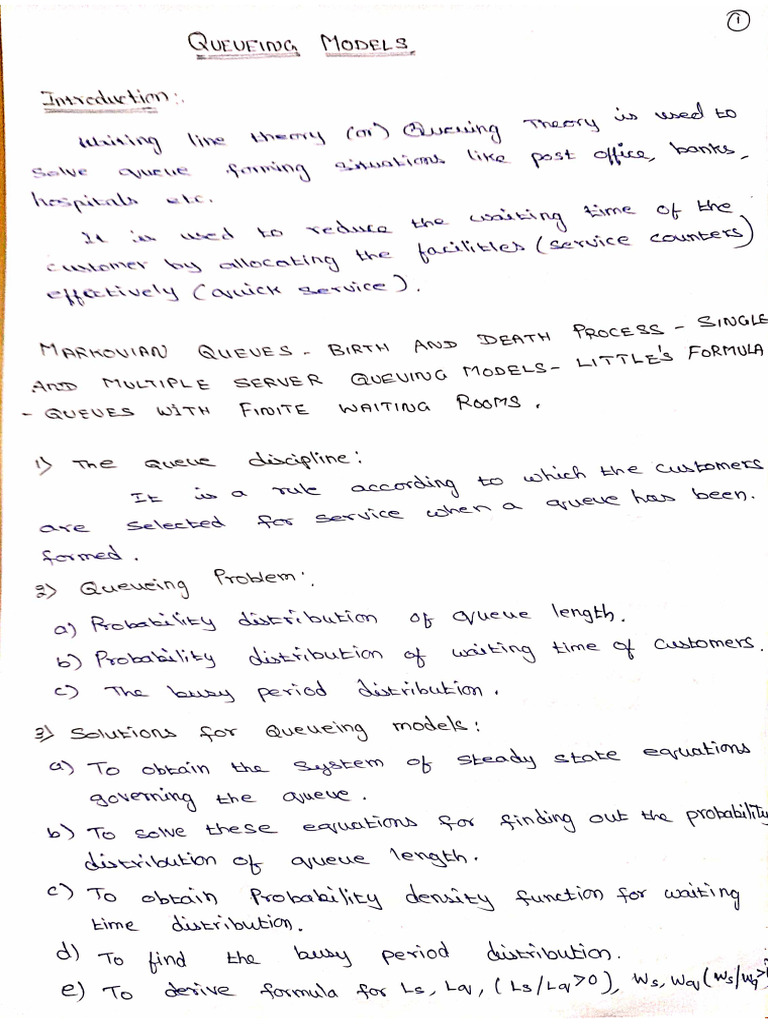 1
QUEUEING MODELS.
Introduction:.
Waiting line theory (or) Queuing Theory is used to
solve queue forming situations like post office, banks,
hospitals etc.
It is used to reduce the waiting time of the
customer by allocating the facilities (service counters)
effectively (Quick service).
MARKOVIAN QUEUES - BIRTH AND DEATH PROCESS - SINGLE
AND MULTIPLE SERVER QUEUING MODELS - LITTLE'S FORMULA
- QUEUES WITH FINITE WAITING ROOMS.
1) The Queue discipline:
It is a rule according to which the customers
are selected for service when a queue has been.
formed.
2) Queueing Problem:.
a) Probability distribution of queue length.
b) Probability distribution of waiting time of customers.
c) The busy period distribution.
3) Solutions for Queueing models:
a) To obtain the system of steady state equations
governing the queue.
b) To solve these equations for finding out the probability
distribution of queue length.
c) To obtain Probability density function for waiting
time distribution.
d) To find the busy period distribution.
e) To derive formula for Ls, Lq, (Ls/Lq>0), Ws, Wq (Ws/Wq>